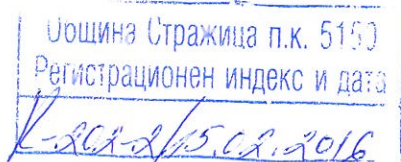 Община Стражица п.к. 5150
Регистрационен индекс и дата
К-202-2/15.02.2016